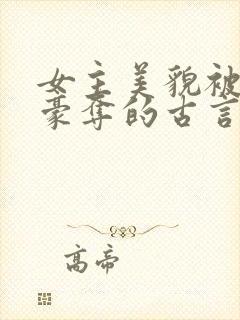 女主美貌被
豪夺的古言
高帝